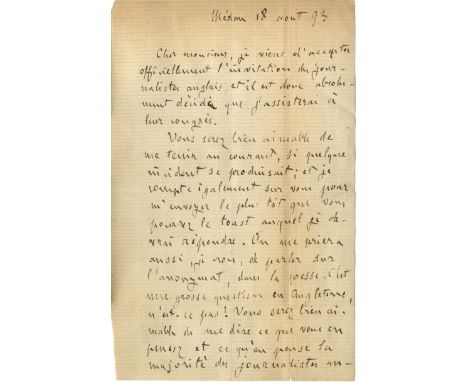 Médan 18 août 93
Cher monsieur, je viens d'accepter
officiellement l'invitation des jour-
nalistes anglais, et il est donc absolu-
ment décidé que j'assisterai à
leur congrès.
Vous serez bien aimable de
me tenir au courant, si quelque
incident se produisait; et je
compte également sur vous pour
m'envoyer le plus tôt que vous
pourrez le toast auquel je de-
vrai répondre. On me priera
aussi, je crois, de parler sur
l'anonymat, dans la presse. C'est
une grosse question en Angleterre,
n'est-ce pas? Vous serez bien ai-
mable de me dire ce que vous en
pensez et ce qu'en pense la
majorité des journalistes an-